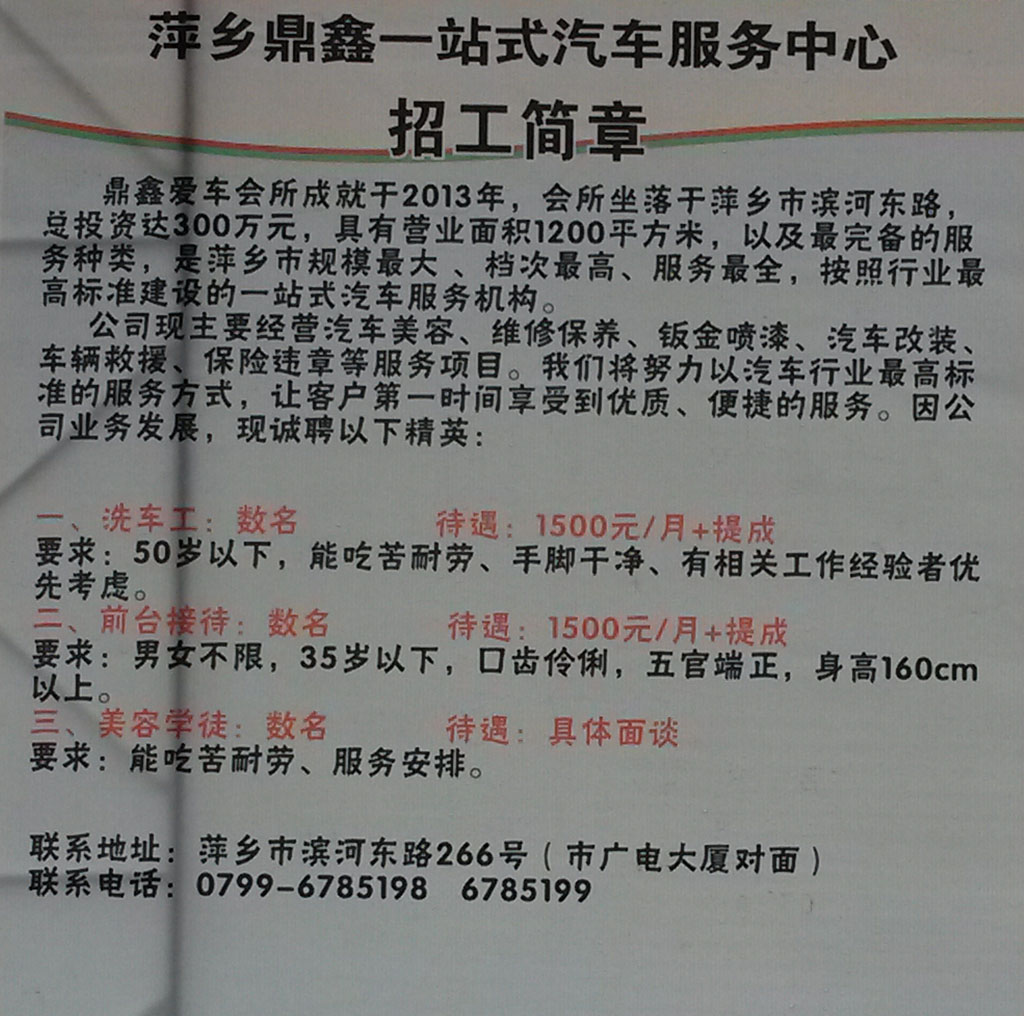 萍乡鼎鑫一站式汽车服务中心
招工简章
鼎鑫爱车会所成就于2013年，会所坐落于萍乡市滨河东路，
总投资达300万元，具有营业面积1200平方米，以及最完备的服
务种类，是萍乡市规模最大、档次最高、服务最全，按照行业最
高标准建设的一站式汽车服务机构。
公司现主要经营汽车美容、维修保养、钣金喷漆、汽车改装、
车辆救援、保险违章等服务项目。我们将努力以汽车行业最高标
准的服务方式，让客户第一时间享受到优质、便捷的服务。因公
司业务发展，现诚聘以下精英：
一、洗车工：数名 待遇：1500元/月+提成
要求：50岁以下，能吃苦耐劳、手脚干净、有相关工作经验者优
先考虑。
二、前台接待：数名 待遇：1500元/月+提成
要求：男女不限，35岁以下，口齿伶俐，五官端正，身高160cm
以上。
三、美容学徒：数名 待遇：具体面谈
要求：能吃苦耐劳、服务安排。
联系地址：萍乡市滨河东路266号（市广电大厦对面）
联系电话：0799-6785198 6785199